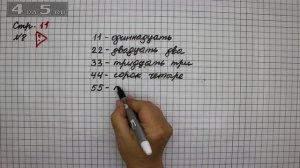 4 по 5.com
Стр. 11
№8
11 - одиннадцать
22 - двадцать два
33 - тридцать три
44 - сорок четыре
55 -